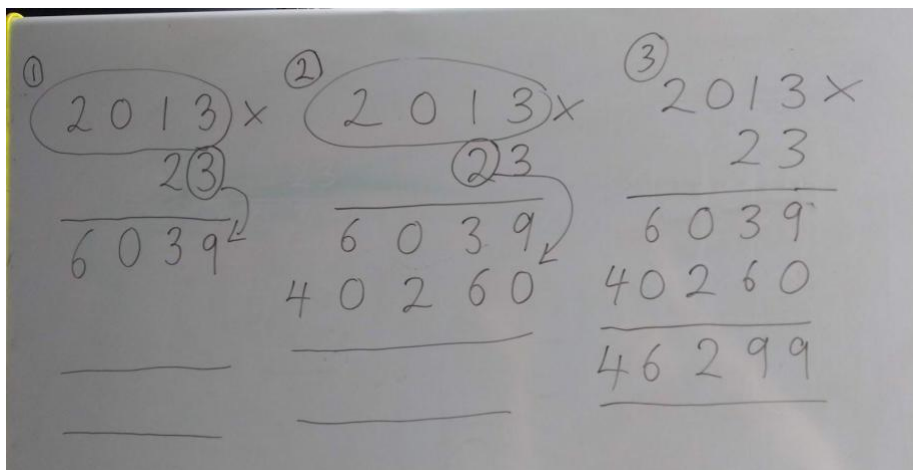 ①
2 0 1 3 ×
2 3
6 0 3 9
②
2 0 1 3 ×
2 3
6 0 3 9
4 0 2 6 0
③
2 0 1 3 ×
2 3
6 0 3 9
4 0 2 6 0
4 6 2 9 9